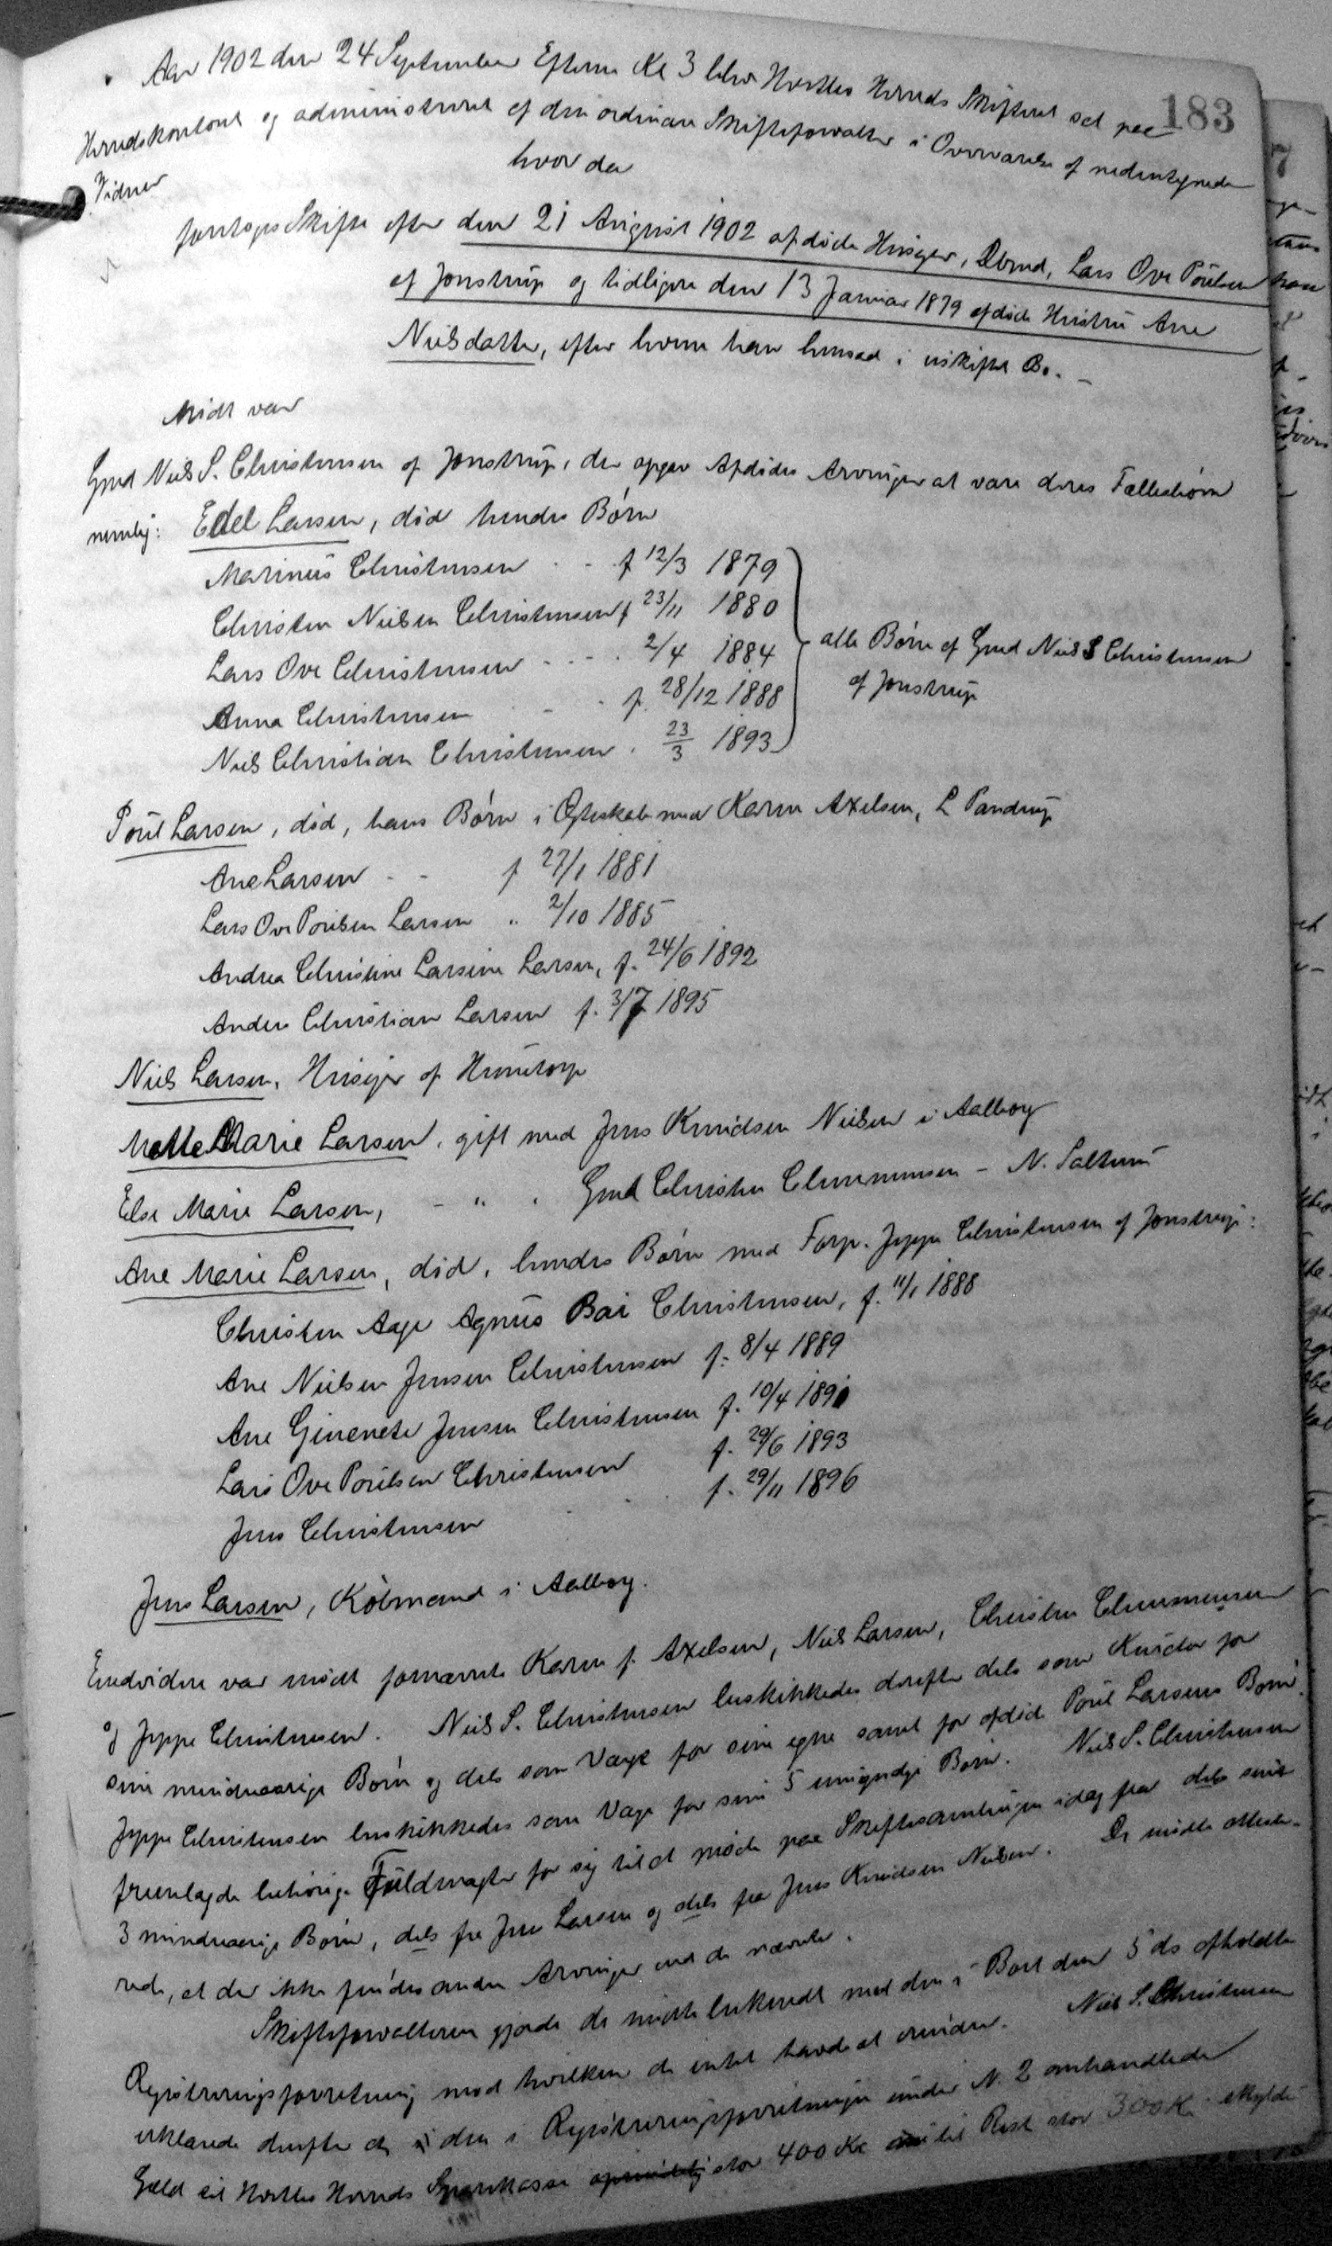 183
Aar 1902 den 24 September Efterm Kl 3 blev Hvetbo Herreds Skifteret sat paa
Herredskontoret og administreret af den ordinære Skifteforvalter i Overværelse af nedentegnede
Vidner
hvor da
foretoges Skifte efter den 21 August 1902 afdøde Husejer, Lars Ove Poulsen
af Jonstrup og tidligere den 13 Januar 1879 afdøde Hustru Ane
Nielsdatter, efter hvem han hensad i uskiftet Bo. -
Mødt var
Gmd Niels S. Christensen af Jonstrup, der opgav Afdødes Arvinger at være deres Fællesbørn
nemlig: Edel Larsen, død hendes Børn
Marinus Christensen - - f 12/3 1879
Christen Nielsen Christensen f 23/11 1880
Lars Ove Christensen - - - 2/4 1884
Anna Christensen - - f. 28/12 1888
Niels Christian Christensen . 23/3 1893
alle Børn af Gmd Niels S Christensen
af Jonstrup
Poul Larsen, død, hans Børn i Ægteskab med Karen Axelsen, L Pandrup
Ane Larsen - - f 27/1 1881
Lars Ove Poulsen Larsen " 2/10 1885
Andrea Christine Larsine Larsen, f. 24/6 1892
Anders Christian Larsen f. 3/7 1895
Niels Larsen, Husejer af Hunetorp
Mette Marie Larsen, gift med Jens Knudsen Nielsen i Aalborg
Else Marie Larsen, - " . Gmd Christen Clemmensen - N. Saltum
Ane Marie Larsen, død, hendes Børn med Forp. Jeppe Christensen af Jonstrup:
Christen Aage Agnus Bai Christensen, f. 11/1 1888
Ane Nielsen Jensen Christensen f. 8/4 1889
Ane Jensen Christensen f. 10/4 189
Lars Ove Poulsen Christensen f. 29/6 1893
Jens Christensen f. 29/11 1896
Jens Larsen, Købmand i Aalborg.
Endvidere var mødt fornævnte Karen f. Axelsen, Niels Larsen, Christen Clemmensen
og Jeppe Christensen. Niels S. Christensen beskikkedes derefter dels som Kurator for
sine mindreaarige Børn og dels som Værge for sine egne samt for afdøde Poul Larsens Børn.
Jeppe Christensen beskikkedes som Værge for sine 5 umyndige Børn. Niels S. Christensen
fremlagde behørige Fuldmagter for sig til at møde paa Skiftesamlingen idag fra dels sine
3 mindreaarige Børn, dels fra Jens Larsen og dels fra Jens Knudsen Nielsen. De mødte atteste-
rede, at der ikke findes andre Arvinger end de nævnte.
Skifteforvalteren gjorde de mødte bekendt med den i Boet den 5 ds afholdte
Registreringsforretning mod hvilken de intet havde at erindre. Niels S. Christensen
erklærede derefter at den i Registreringsforretningen under N. 2 omhandlede
Gæld til Hvetbo Herreds Sparekasse oprindelig stor 400 Kr til Rest stor 300 Kr skyldes